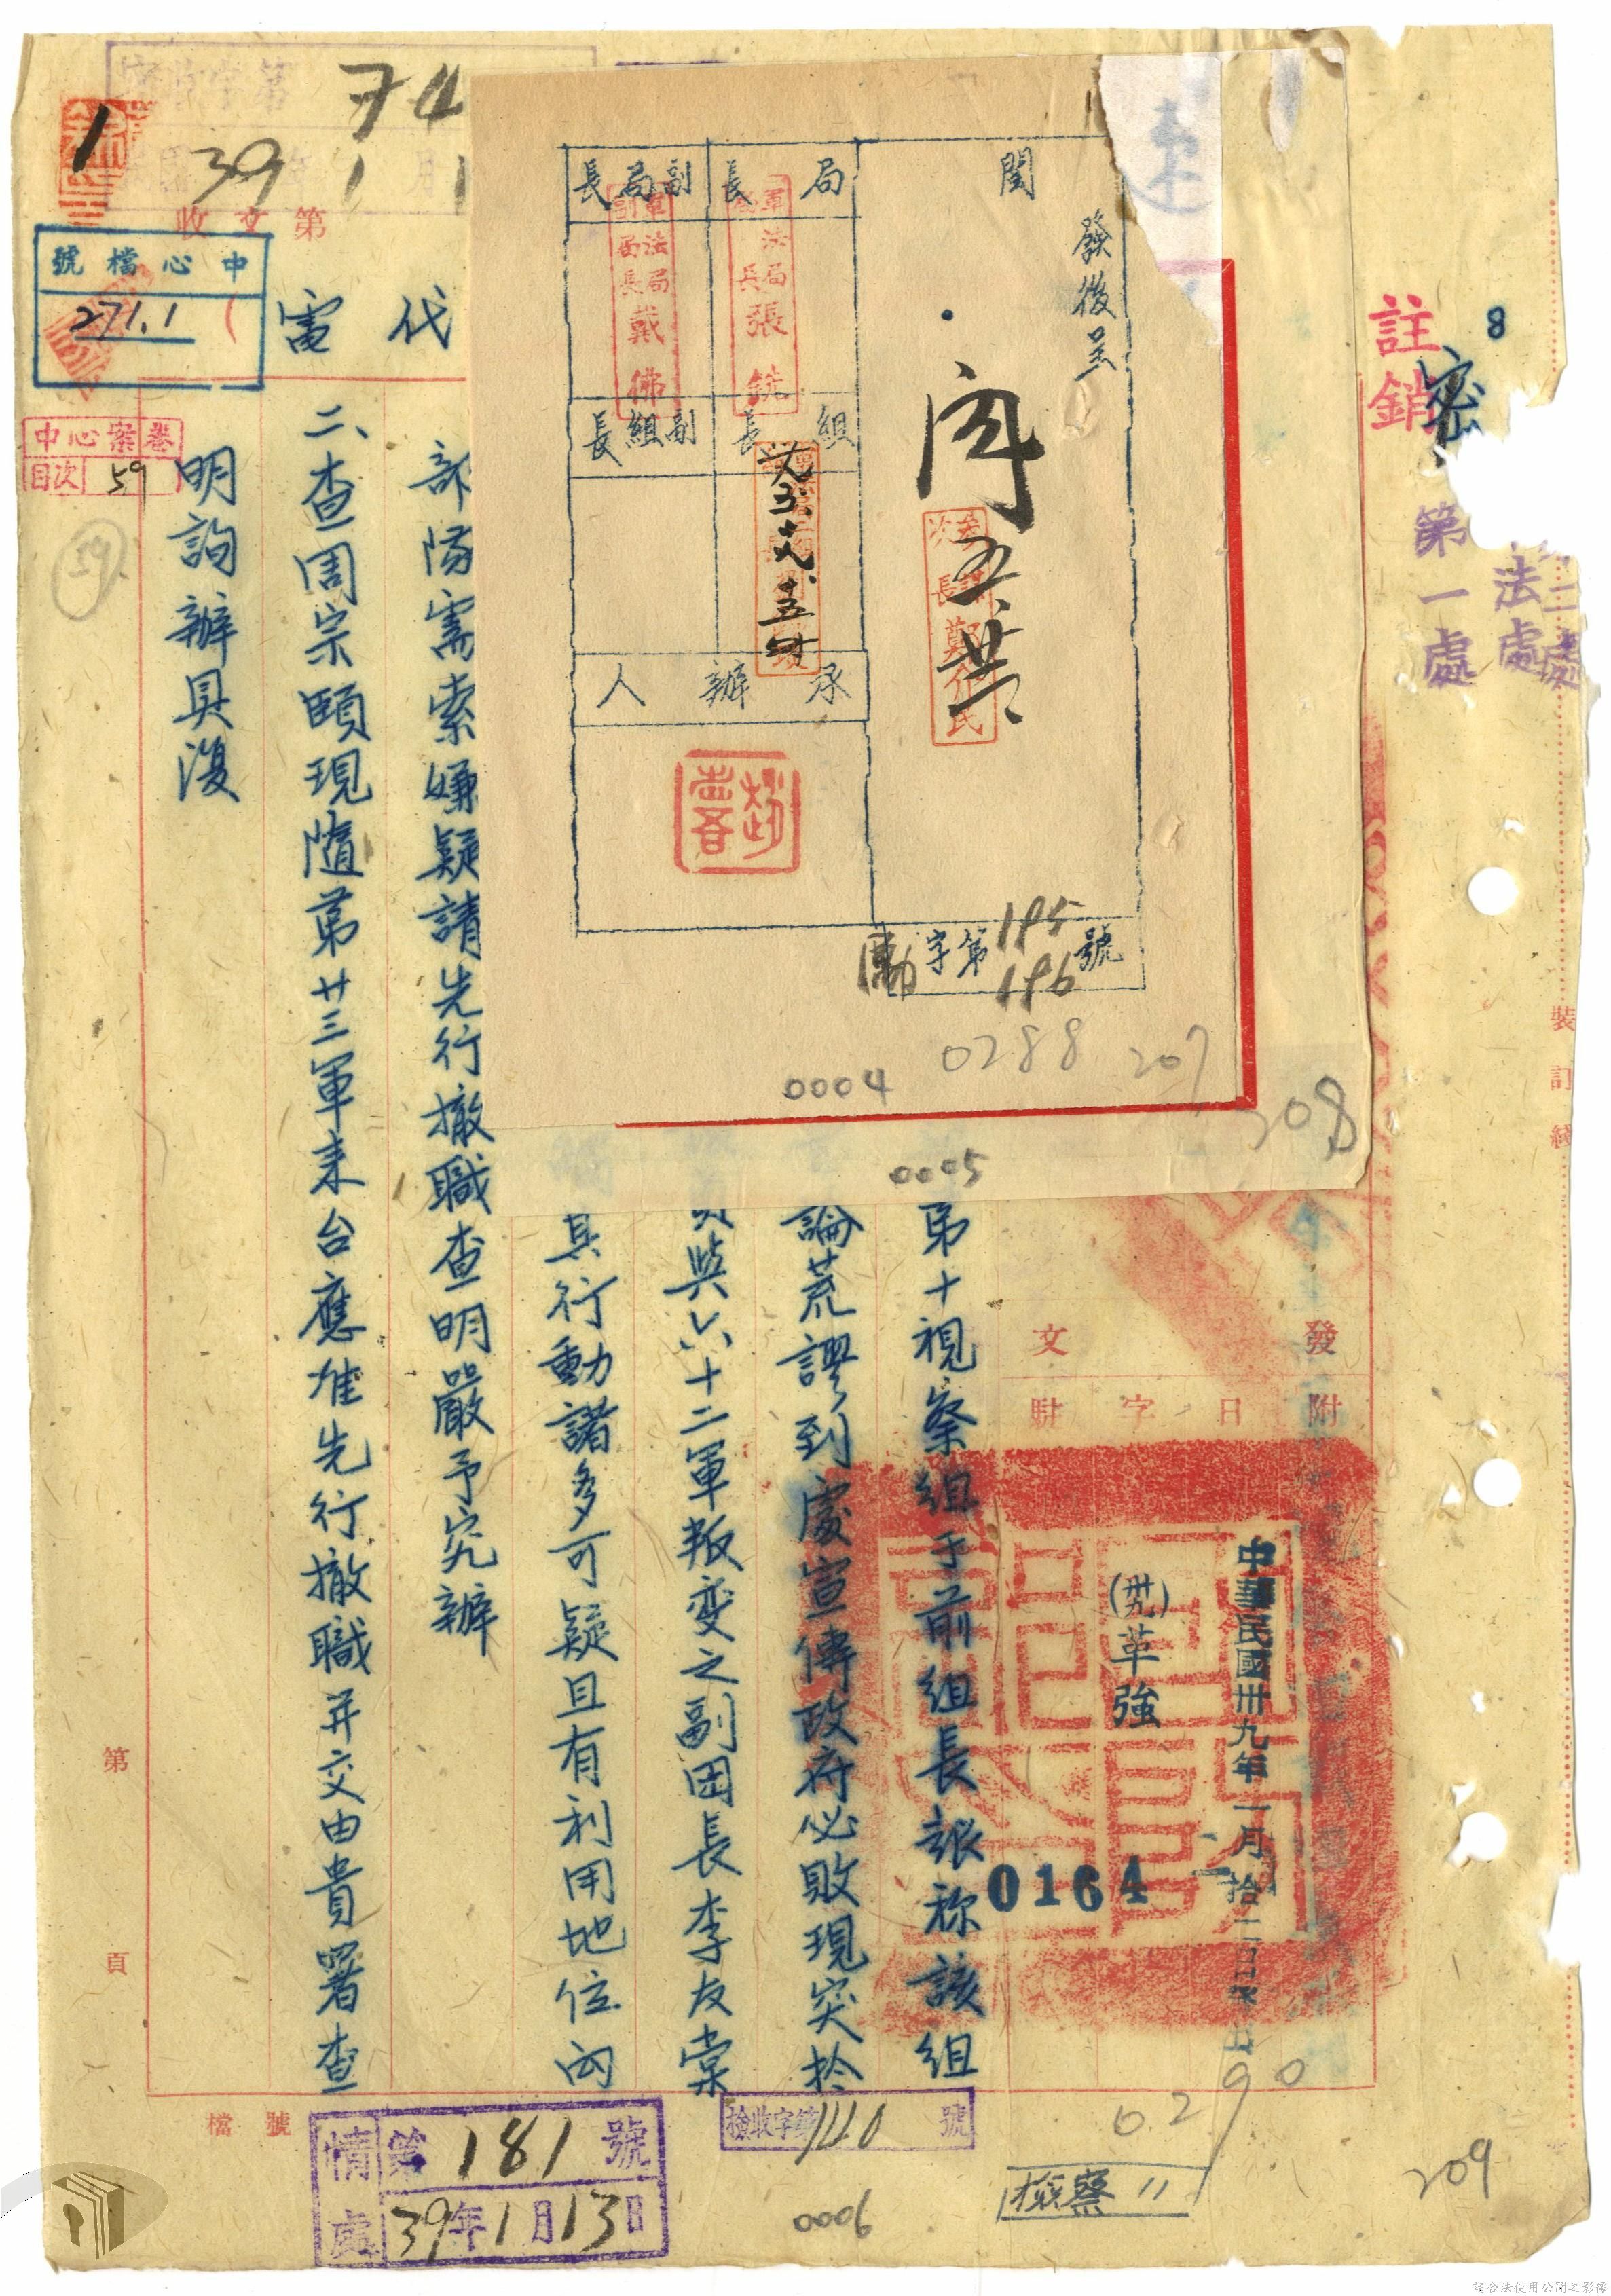 註銷
密
8
第一處
法處
第二處
裝訂綫
發
文
附
日
字
駐
中華民國卅九年一月拾二日
(卅九)革強
0164
第十視察組于前組長報称該組
論荒謬到處宣傳政府必敗現突於
與六十二軍叛变之副团長李友棠
其行動諸多可疑且有利用地位向
部隊需索嫌疑請先行撤職查明嚴予究辦
二、查周宗頤現隨第廿三軍来台應准先行撤職并交由貴署查
明詢辦具復
代電
收文第
74
39 1 1
1
中心檔號
271.1
中心案卷
目次 59
59
第
頁
檔號
情處
第181號
39年1月13日
檢收字第1140號
檢察 11
0290
209
0006
速
閱
發後呈
局長
副局長
軍法局長張
軍法局副局長戴佛
組長
副組長
承辦人
參謀次長鄭介民
勵字第195 196號
0288
207
0004
208
0005
請合法使用公開之影像